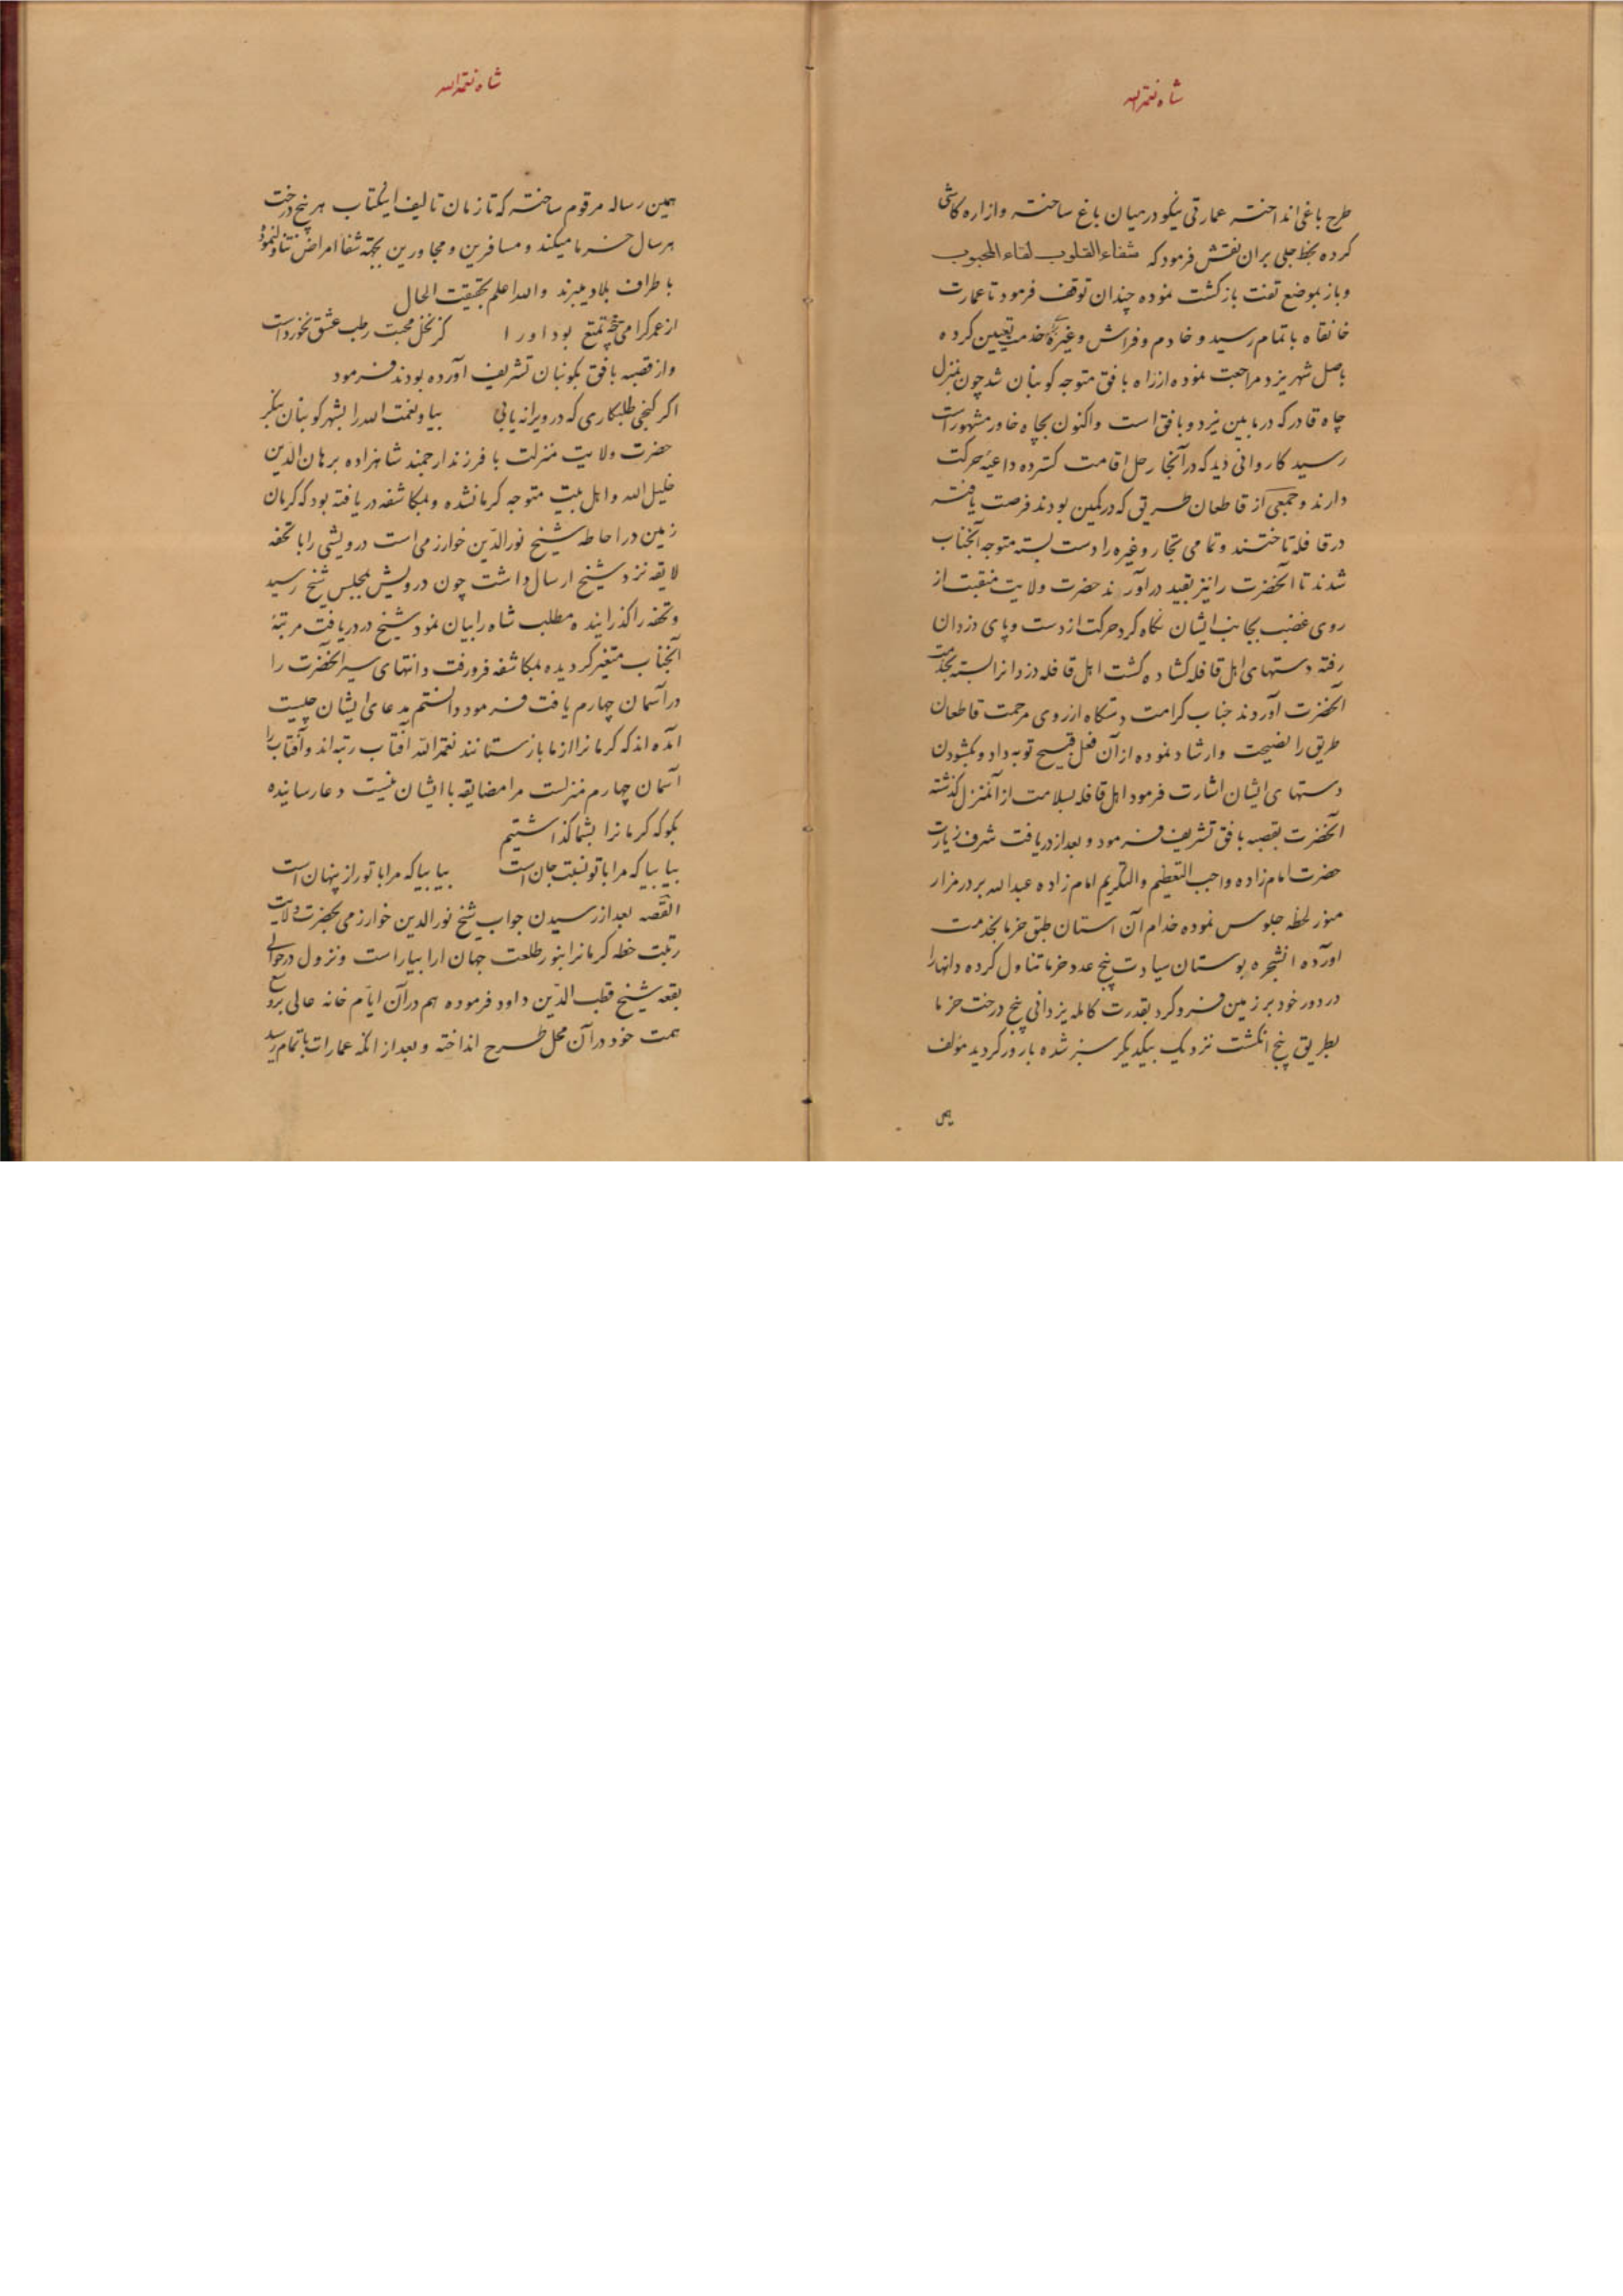 شاه نعمة الله
طرح باغی انداخته عمارتی نیکو درمیان باغ ساخته وازاره کاشی
کرده بخط جلی بران نقش فرمود که شفاء القلوب لقاء المحبوب
وباز بموضع تفت بازگشت نموده چندان توقف فرمود تا عمارت
خانقاه باتمام رسید و خادم و فراش و غیره خدمت تعیین کرده
باصل شهر یزد مراجعت نموده ازراه بافق متوجه کوبنان شد چون بمنزل
چاه قادر که درمابین یزد و بافق است واکنون بچاه خاور مشهور است
رسید کاروانی دید که درآنجا رحل اقامت کسترده داعیه حرکت
دارند و جمعی از قاطعان طریق که درکمین بودند فرصت یافته
درقافله تاختند و تمامی تجار و غیره را دست بسته متوجه آنجناب
شدند تا آنحضرت را نیز بقید درآورند حضرت ولایت منقبت از
روی غضب بجانب ایشان نگاه کرد حرکت از دست و پای دزدان
رفته دستهای اهل قافله کشاده کشت اهل قافله دزدانرا بسته بخدمت
آنحضرت آوردند جناب کرامت دستگاه ازروی مرحمت قاطعان
طریق را نصیحت وارشاد نموده ازآن فعل قبیح توبه داد و بکشودن
دستهای ایشان اشارت فرمود اهل قافله بسلامت ازآنمنزل گذشته
آنحضرت بقصبه بافق تشریف فرمود و بعداز دریافت شرف زیارت
حضرت امام زاده واجب التعظیم والتکریم امام زاده عبدالله بردر مزار
منور لحظه جلوس نموده خدام آن استان طبق خرما بخدمت
اورده انشجره بوستان سیادت پنج عدد خرما تناول کرده دانهارا
دردور خود برزمین فرو کرد بقدرت کامله یزدانی پنج درخت خرما
بطریق پنج انکشت نزدیک بیکدیکر سبز شده بارور کردید مؤلف
شاه نعمة الله
همین رساله مرقوم ساخته که تا زمان تالیف اینکتاب هر پنج درخت
هرسال خرما میکند و مسافرین و مجاورین بجهة شفا امراض تناول نموده
باطراف بلاد میبرند والله اعلم بحقیقت الحال
ازعمر کرامی چه تمتع بود اورا کز نخل محبت رطب عشق نخورداست
وازقصبه بافق بکوبنان تشریف آورده بودند فرمود
اکر کنجی طلبکاری که درویرانه یابی بیا و نعمت الله را بشهر کوبنان بنگر
حضرت ولایت منزلت با فرزند ارجمند شاهزاده برهان الدین
خلیل الله واهل بیت متوجه کرمانشده وبمکاشفه دریافته بود که کرمان
زمین دراحاطه شیخ نورالدین خوارزمی است درویشی را با تحفه
لایقه نزد شیخ ارسال داشت چون درویش بمجلس شیخ رسید
وتحفه را کذرانیده مطلب شاه رابیان نمود شیخ دردریافت مرتبه
آنجناب متغیر کردیده بمکاشفه فرورفت وانتهای سیر آنحضرت را
درآسمان چهارم یافت فرمود دانستم مدعای ایشان چیست
آمده اند که کرمانرا ازما بازستانند نعمة الله آفتاب رتبه اند وآفتاب را
آسمان چهارم منزلست مرا مضایقه با ایشان نیست دعا رسانیده
بکو که کرمانرا بشما کذاشتیم
بیا بیا که مرا با تو نسبت جان است بیا بیا که مرا با تو راز پنهان است
القصه بعداز رسیدن جواب شیخ نورالدین خوارزمی بحضرت ولایت
رتبت خطه کرمانرا بنور طلعت جهان ارا بیاراست ونزول درحوالی
بقعه شیخ قطب الدین داود فرموده هم درآن ایام خانه عالی بر وسع
همت خود درآن محل طرح انداخته وبعداز انکه عمارات باتمام رسید